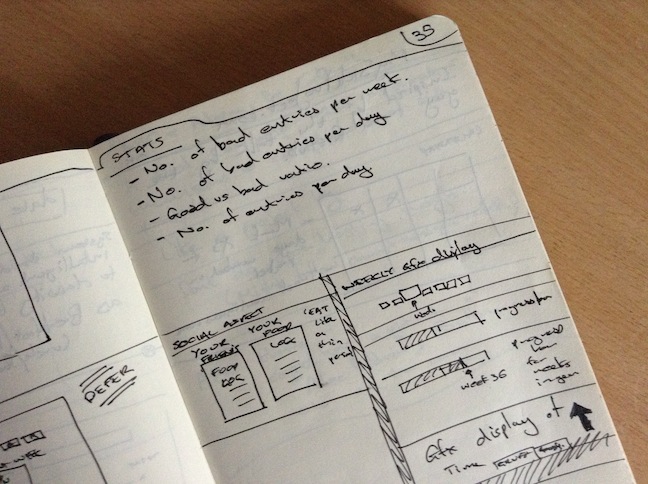 35
STATS
- No. of bad entries per week.
- No. of bad entries per day
- Good vs bad ratio.
- No. of entries per day.
WEEKLY Gfx display
week
progress bar
progress bar for weeks in year
week 36
SOCIAL ASPECT
YOUR FRIENDS
FOOD LOG
YOUR FOOD
LOG
'EAT like a thin
DEFER
WEEK
Gfx display of
Time